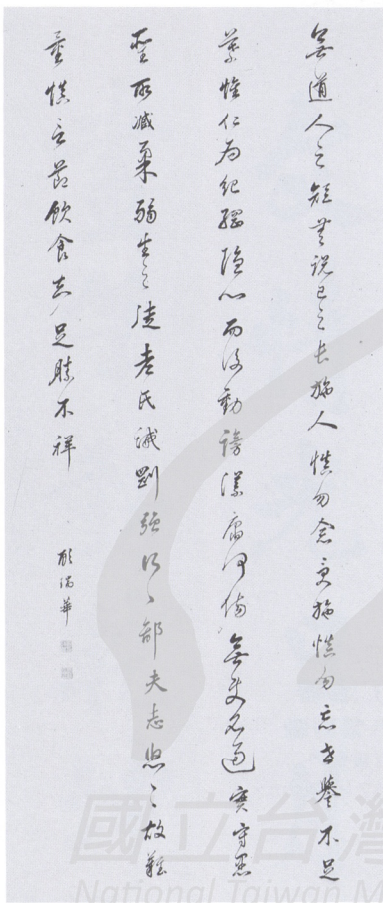 無道人之短無說己之長施人慎勿念受施慎勿忘世譽不足
慕惟仁為紀綱隱心而後動謗議庸何傷無使名過實守愚
聖所臧柔弱生之徒老氏誡剛強行々鄙夫志悠々故難
量慎言節飲食知足勝不祥
國立台灣
National Taiwan M